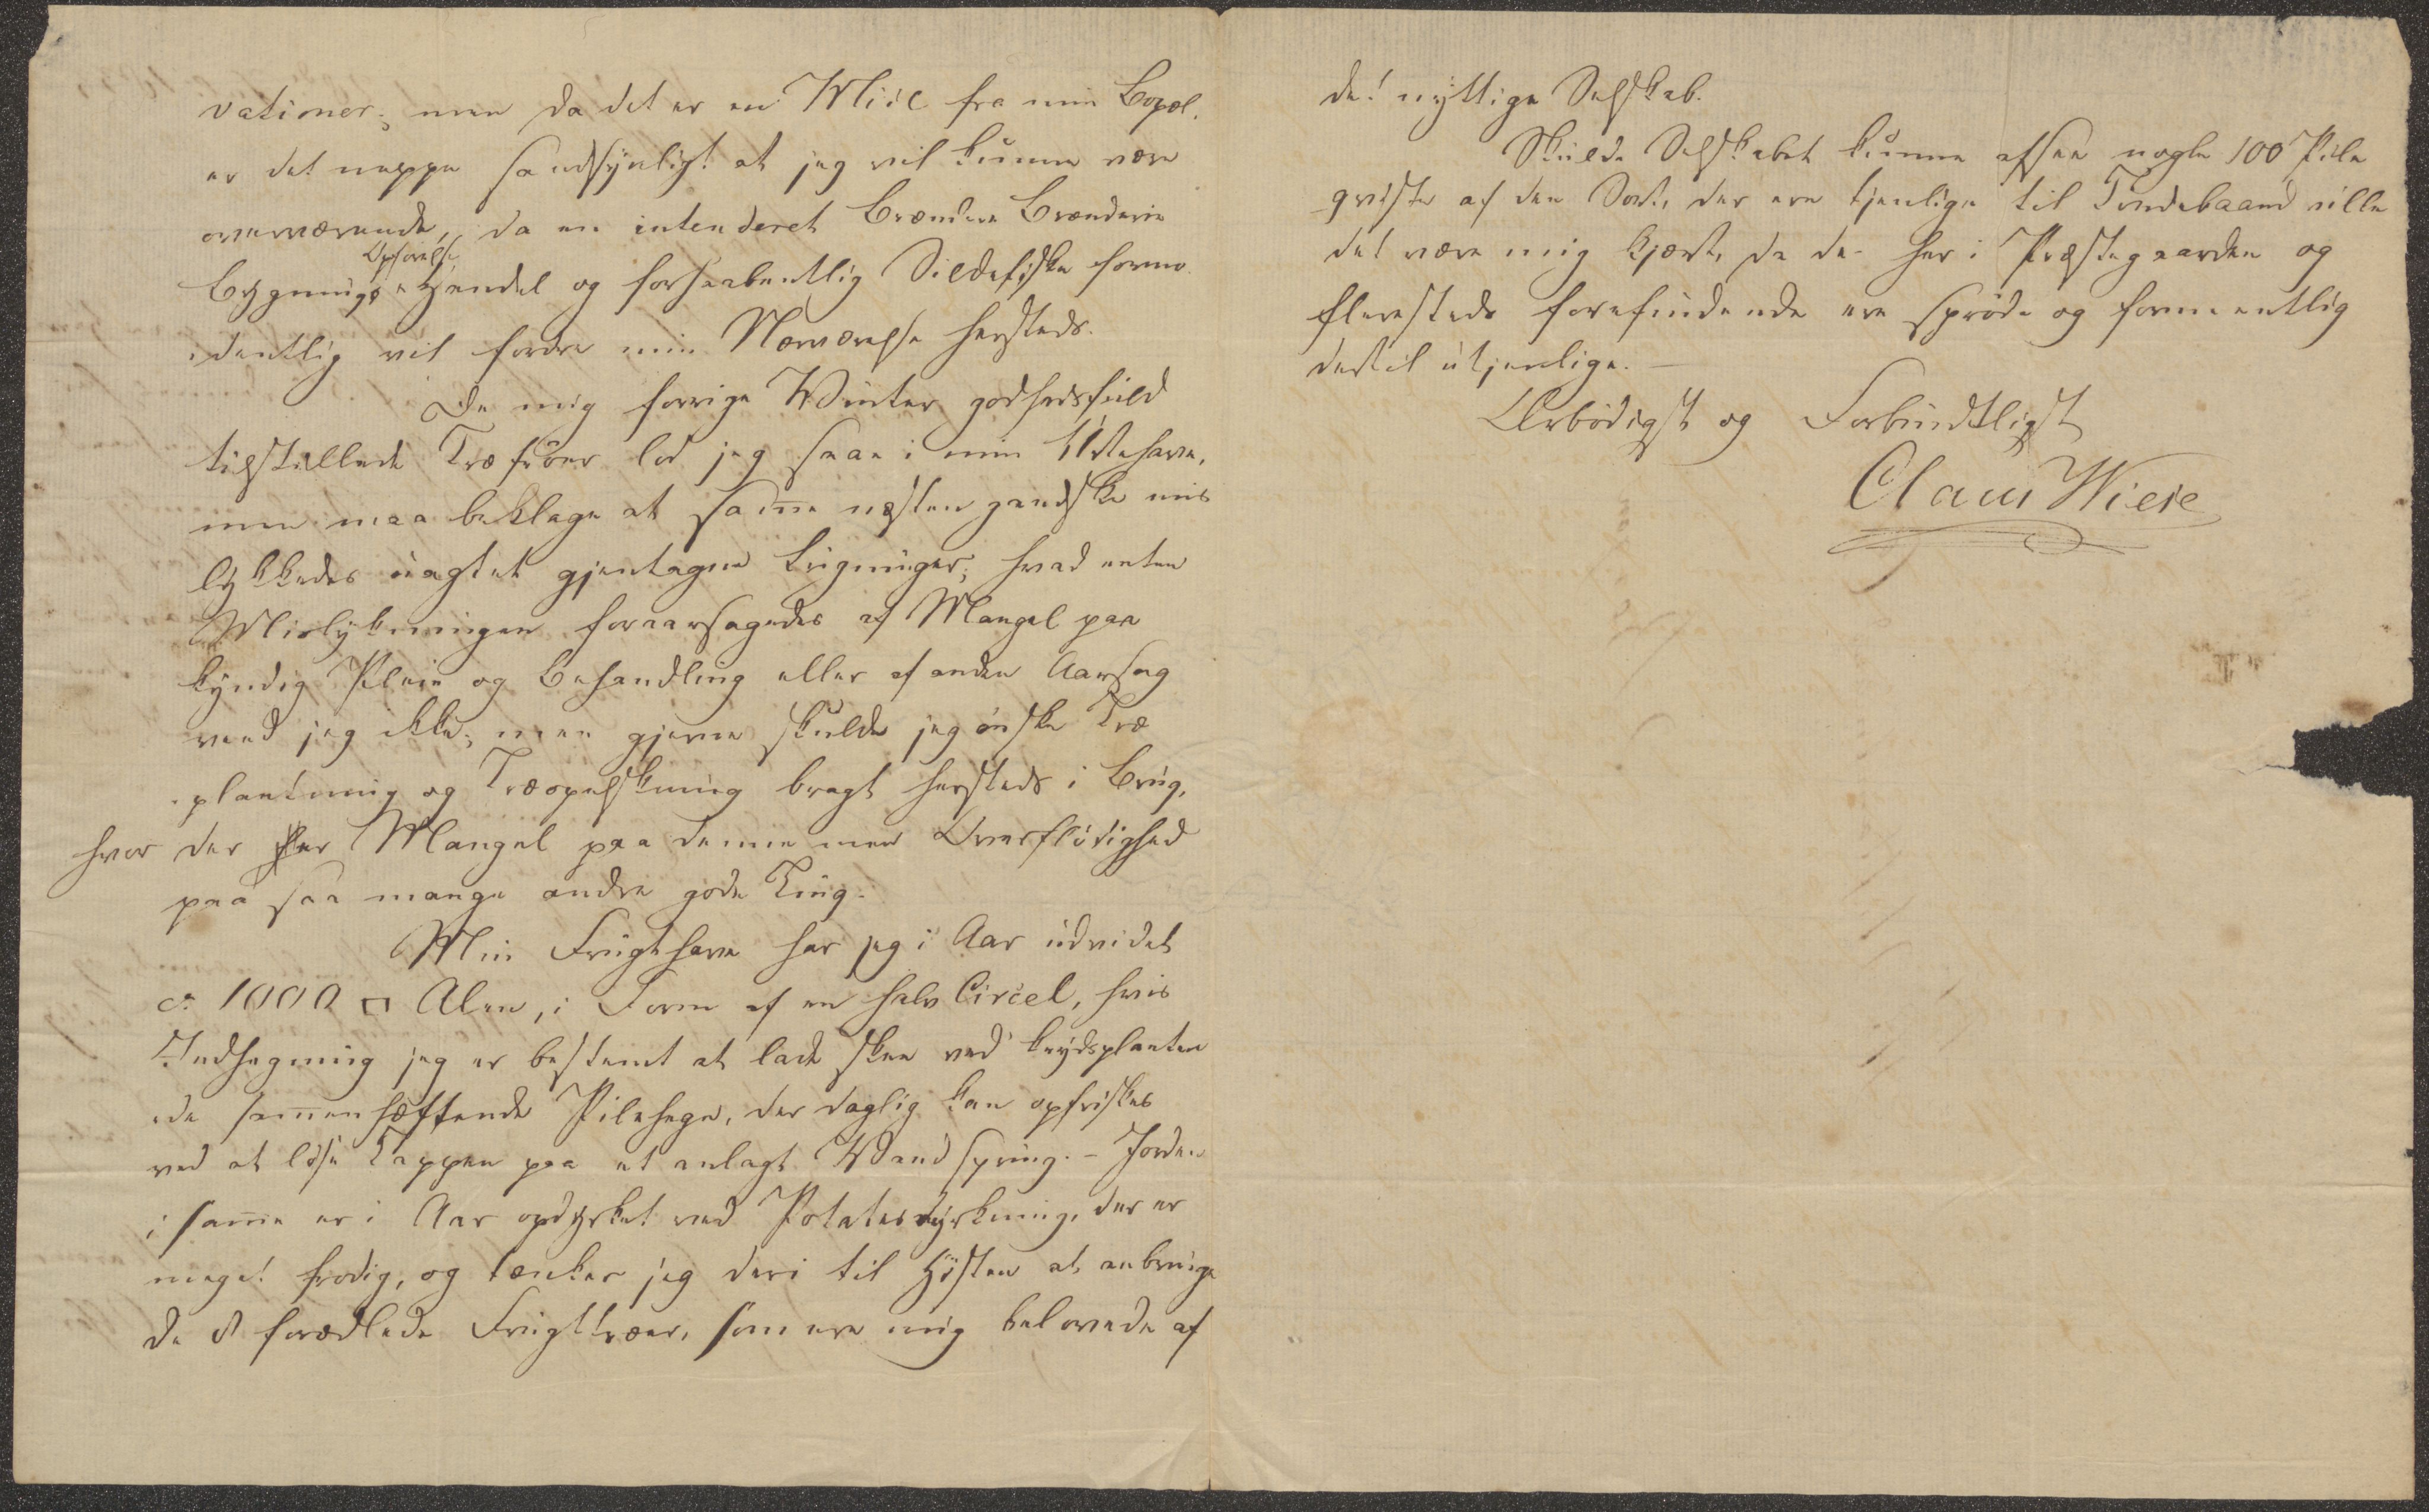 vationer; men da det er en Miil fra min Bopæl,
er det neppe sandsynligt at jeg vil kunne være
overværende, da en intenderet Brænderie
Opførelse,
Bygnings Handel og forhaabentlig Sildefiske formo
dentlig vil fordre min Nærværelse hersteds.
De mig forrige Winter godhedsfuld
tilstillede Træfröer lod jeg saae i min Urtehave,
men maa beklage at samme næsten gandske mis
lykkedes uagtet gjentagne Lugninger; hvad enten
Mislykningen foraarsagedes af Mangel paa
kyndig Pleie og Behandling eller af anden Aarsag
veed jeg ikke; men gjerne skulde jeg önske Træ
plantning og Træopelskning bragt hersteds i Brug,
hvor der er Mangel paa denne men Overflödighed
paa saa mange andre gode Ting.
Min Frugthave har jeg i Aar udvidet
ca 1000 □ Alen, i Form af en halv Circel, hvis
Indhegning jeg er bestemt at lade skee ved krydsplanten
de sammenhæftende Pilehegn, der daglig kan opfriskes
ved at löse Tappen paa et anlagt Wandspring. – Jorden
i samme er i Aar opdyrket ved Potatesdyrkning, der er
meget frodig, og tænker jeg deri til Hösten at anbringe
de 8 forædlede Frugttræer, som ere mig belovede af
det nyttige Selskab.
Skulde Selskabet kunne afsee nogle 100 Pile
qviste af den Sort, der ere tjenlige til Tøndebaand ville
det være mig kjært, da de her i Præstegaarden og
flersteds forefindende ere spröde og formeentlig
dertil utjenlige. –
Ærbödigst og Forbindtligst
Claus Wiese